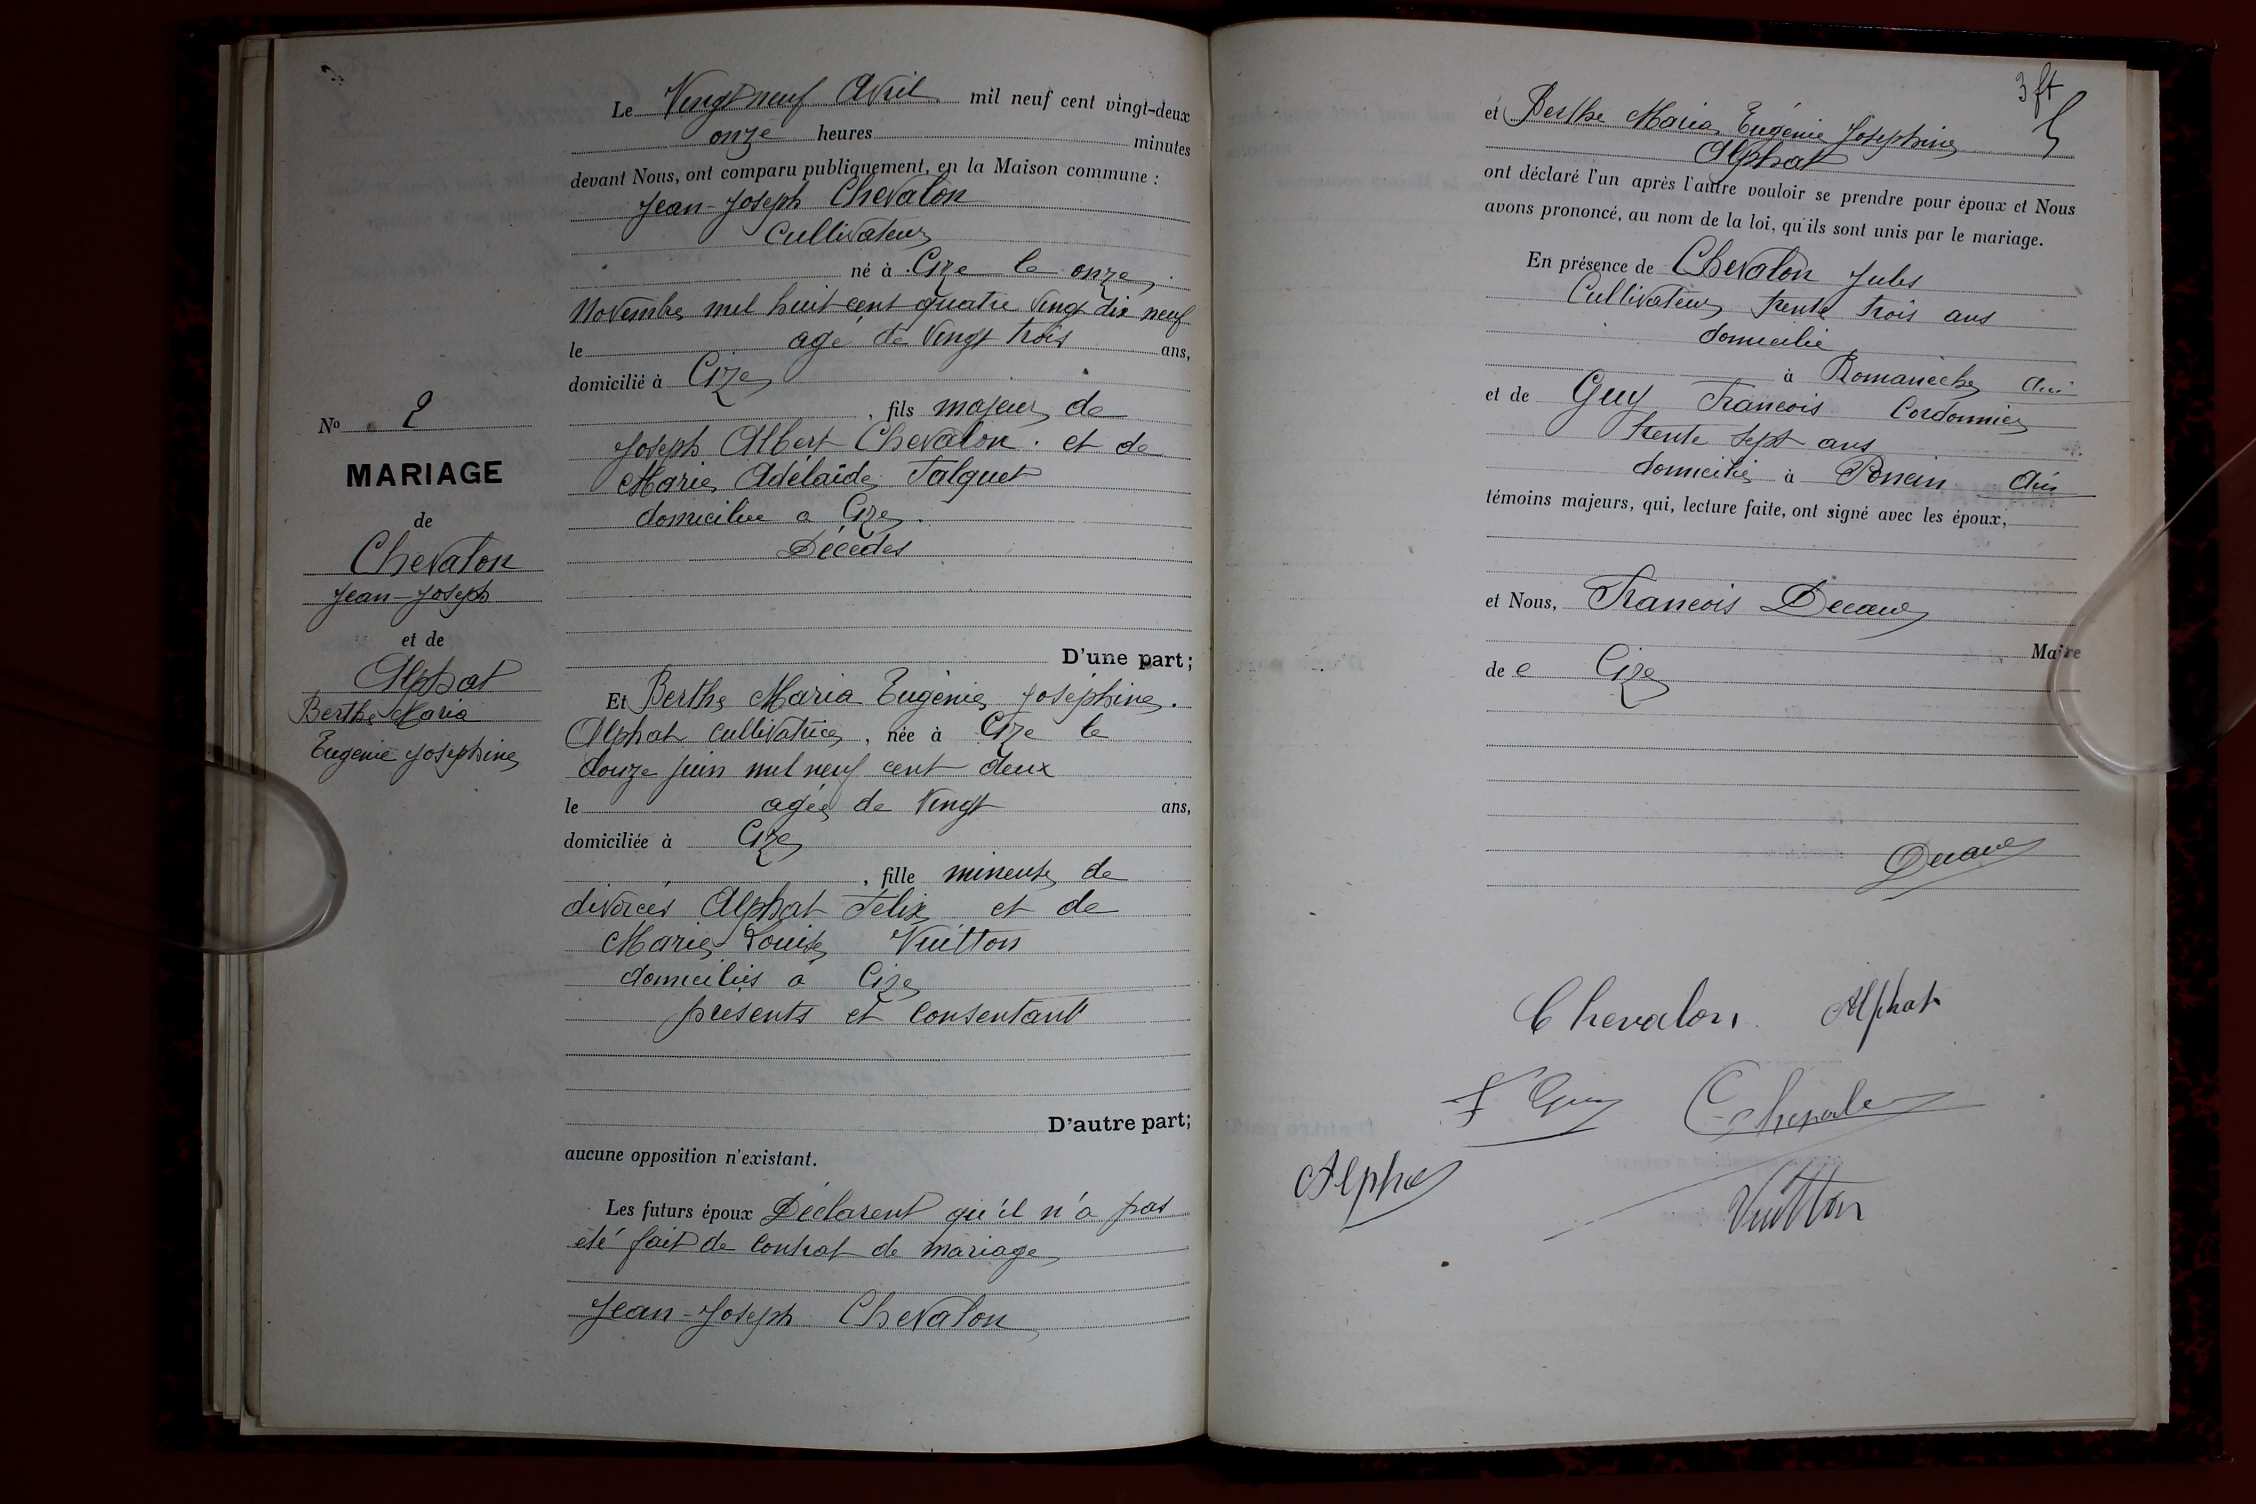 Le Vingt neuf Avril mil neuf cent vingt-deux
onze heures minutes
devant Nous, ont comparu publiquement, en la Maison commune :
Jean-Joseph Chevalon
Cultivateur
né à Cize le onze
Novembre mil huit cent quatre vingt dix neuf
le agé de Vingt trois ans,
domicilié à Cize
, fils majeur de
Joseph Albert Chevalon et de
Marie Adélaïde Falquet
domicilié a Cize
Décédés
No 2
MARIAGE
de
Chevalon
Jean-Joseph
et de
Alphat
Berthe Maria
Eugenie Josephine
D'une part;
Et Berthe Maria Eugénie Joséphine
Alphat cultivatrice, née à Cize le
douze juin mil neuf cent deux
le agée de Vingt ans,
domiciliée à Cize
, fille mineure de
divorcés Alphat Félix et de
Marie Louise Vuitton
domiciliés à Cize
présents et consentant
D'autre part;
aucune opposition n'existant.
Les futurs époux Déclarent qu'il n'a pas
été fait de contrat de mariage
Jean-Joseph Chevalon
3 ft
et Berthe Maria Eugénie Josephine
Alphat
ont déclaré l'un après l'autre vouloir se prendre pour époux et Nous
avons prononcé, au nom de la loi, qu'ils sont unis par le mariage.
En présence de Chevalon Jules
Cultivateur trente trois ans
domicilié
à Romanèche Ain
et de Guy Francois Cordonnier
trente sept ans
domicilié à Poncin Ain
témoins majeurs, qui, lecture faite, ont signé avec les époux,
et Nous, Francois Decave
Maire
de Cize
Decave
Chevalon Alphat
F Guy Chevalon
Alphat
Vuitton